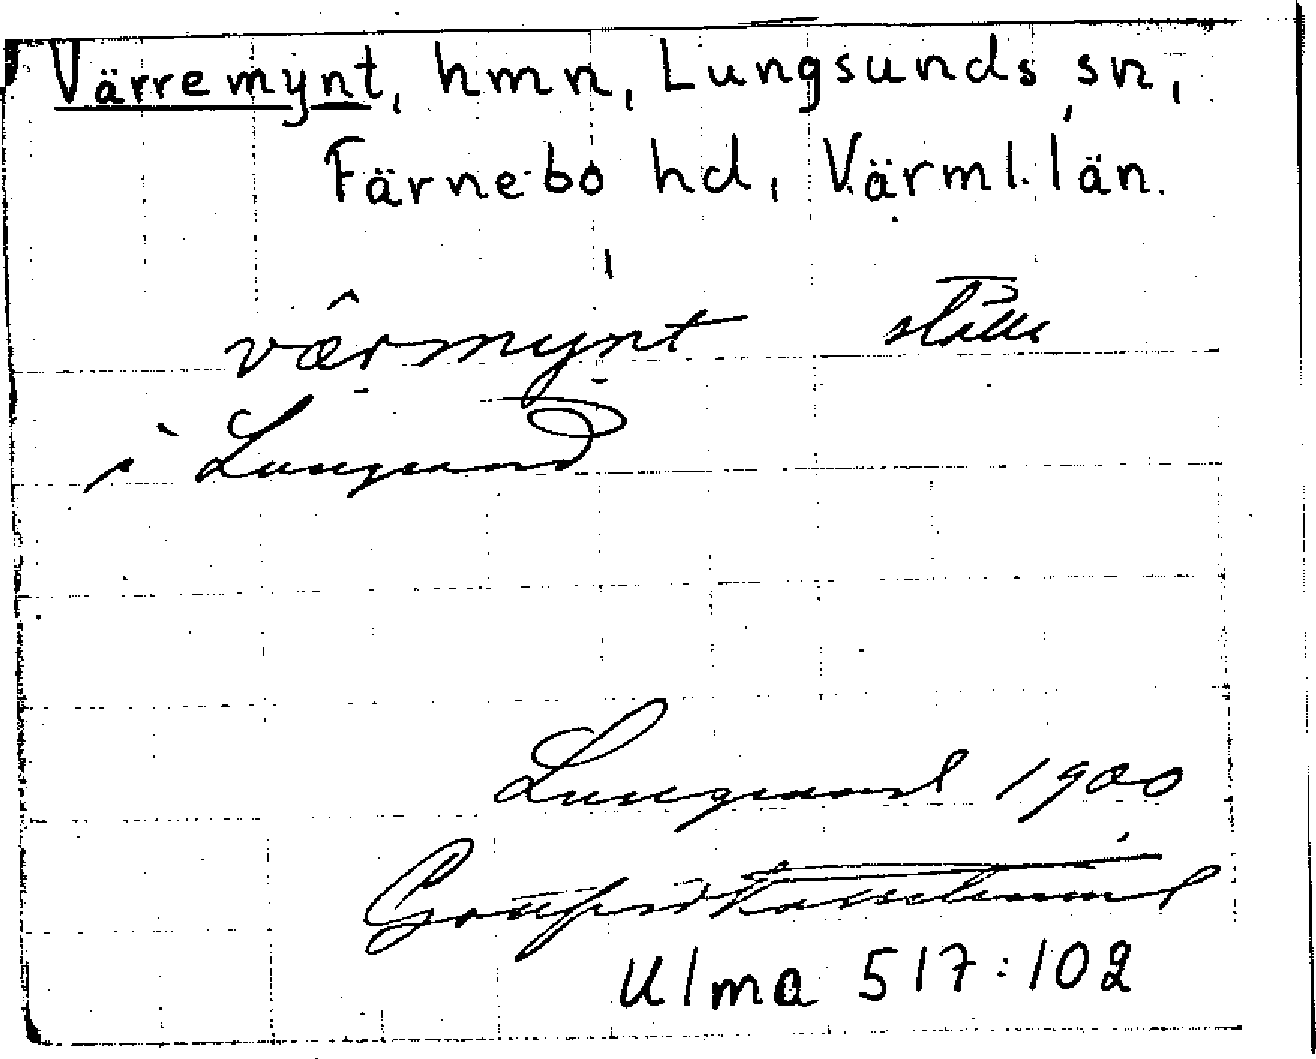 Värremynt, hmn, Lungsunds sn,
Färnebo hd, Värml. län.
värmynt ställe
i Lungsund
Lungsund 1900
Gottfrid Kallstenius
Ulma 517:102